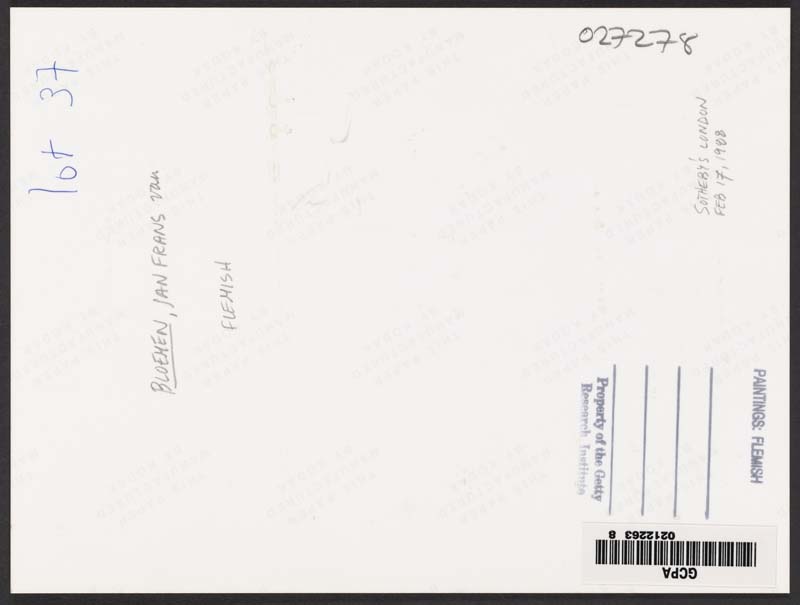 027278
lot 37
BLOEMEN, JAN FRANS van
FLEMISH
SOTHEBY'S LONDON
FEB 17, 1988
PAINTINGS: FLEMISH
Property of the Getty
Research Institute
GCPA
0212263 8
THIS PAPER
MANUFACTURED
BY KODAK